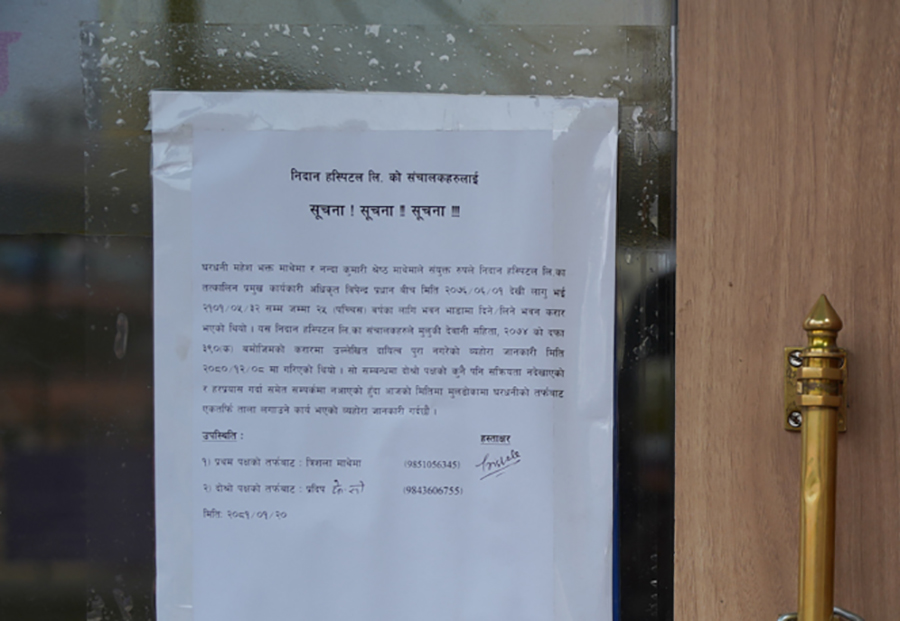 निदान हस्पिटल लि. को संचालकहरुलाई
सूचना ! सूचना !! सूचना !!!
घरधनी महेश भक्त माथेमा र नन्दा कुमारी श्रेष्ठ माथेमाले संयुक्त रुपले निदान हस्पिटल लि.का
तत्कालिन प्रमुख कार्यकारी अधिकृत विपेन्द्र प्रधान बीच मिति २०७६/०६/०१ देखी लागु भई
२१०१/०५/३२ सम्म जम्मा २५ (पच्चिस) वर्षका लागि भवन भाडामा दिने/लिने भवन करार
भएको थियो । यस निदान हस्पिटल लि.का संचालकहरुले मुलुकी देवानी संहिता, २०७४ को दफा
३९०(क) बमोजिमको करारमा उल्लेखित दायित्व पुरा नगरेको व्यहोरा जानकारी मिति
२०८०/१२/०८ मा गरिएको थियो । सो सम्बन्धमा दोश्रो पक्षको कुनै पनि सक्रियता नदेखाएको
र हरप्रयास गर्दा समेत सम्पर्कमा नआएको हुँदा आजको मितिमा मुलढोकामा घरधनीको तर्फबाट
एकतर्फि ताला लगाउने कार्य भएको व्यहोरा जानकारी गर्दछौं ।
उपस्थिति : हस्ताक्षर
१) प्रथम पक्षको तर्फबाट : त्रिशला माथेमा (9851056345)
२) दोश्रो पक्षको तर्फबाट : प्रदिप के.सी (9843606755)
मिति: २०८१/०१/२०